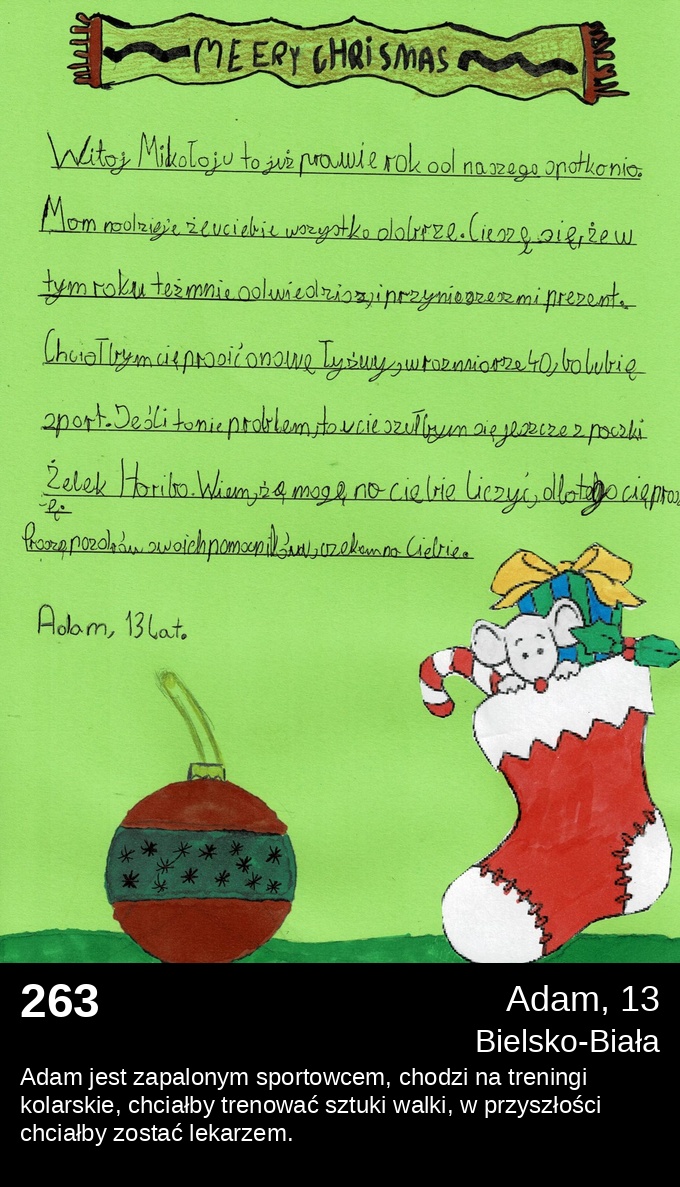 MEERY CHRISMAS
Witaj Mikołaju to już prawie rok od naszego spotkania.
Mam nadzieje że u ciebie wszystko dobrze. Cieszę się, że w
tym roku też mnie odwiedzisz, i przynieszesz mi prezent.
Chciałbym cię prosić o nowe łyżwy, w rozmiarze 40, bo lubię
sport. Jeśli to nie problem, to ucieszułbym się jeszcze z paczki
Żelek Haribo. Wiem, żę mogę na ciebie liczyć, dlatego cię pros
ę.
Proszę pozdrów swoich pomocników, czekam na Ciebie.
Adam, 13 Lat.
263
Adam, 13
Bielsko-Biała
Adam jest zapalonym sportowcem, chodzi na treningi
kolarskie, chciałby trenować sztuki walki, w przyszłości
chciałby zostać lekarzem.